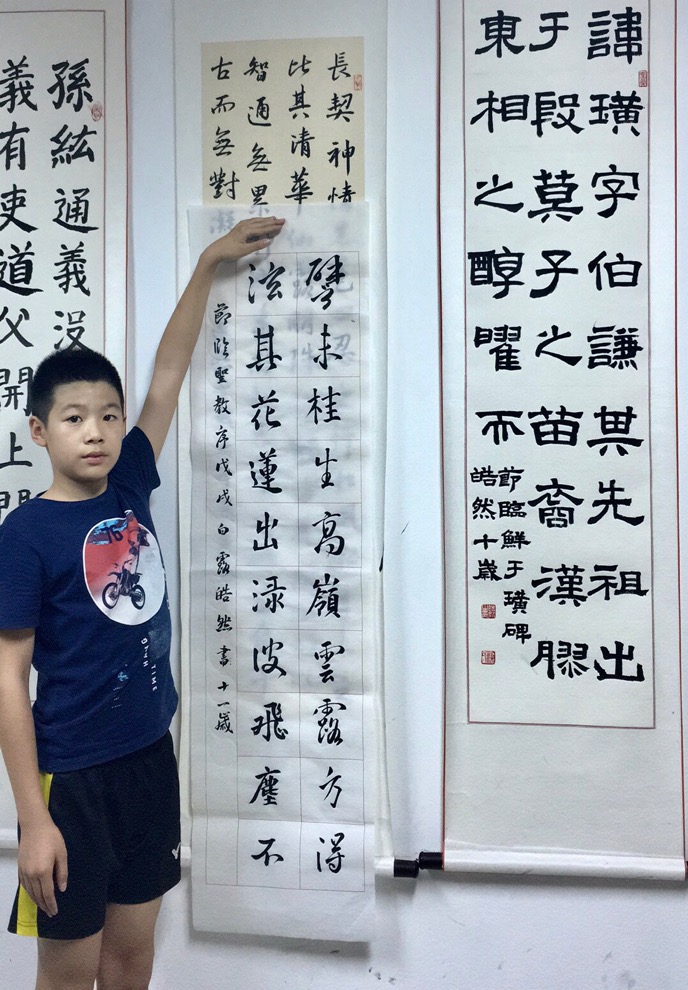 諱璜字伯謙其先祖出
于殷箕子之苗裔漢膠
東相之醇曜而
節臨鮮于璜碑
皓然十歲
長契神情
比其清華
智通無累
古而無對
譬夫桂生高嶺雲露方得
泫其花蓮出淥波飛塵不
節臨聖教序戊戌白露皓然書十一歲
孫紘通義沒
義有吏道父開上
TIME